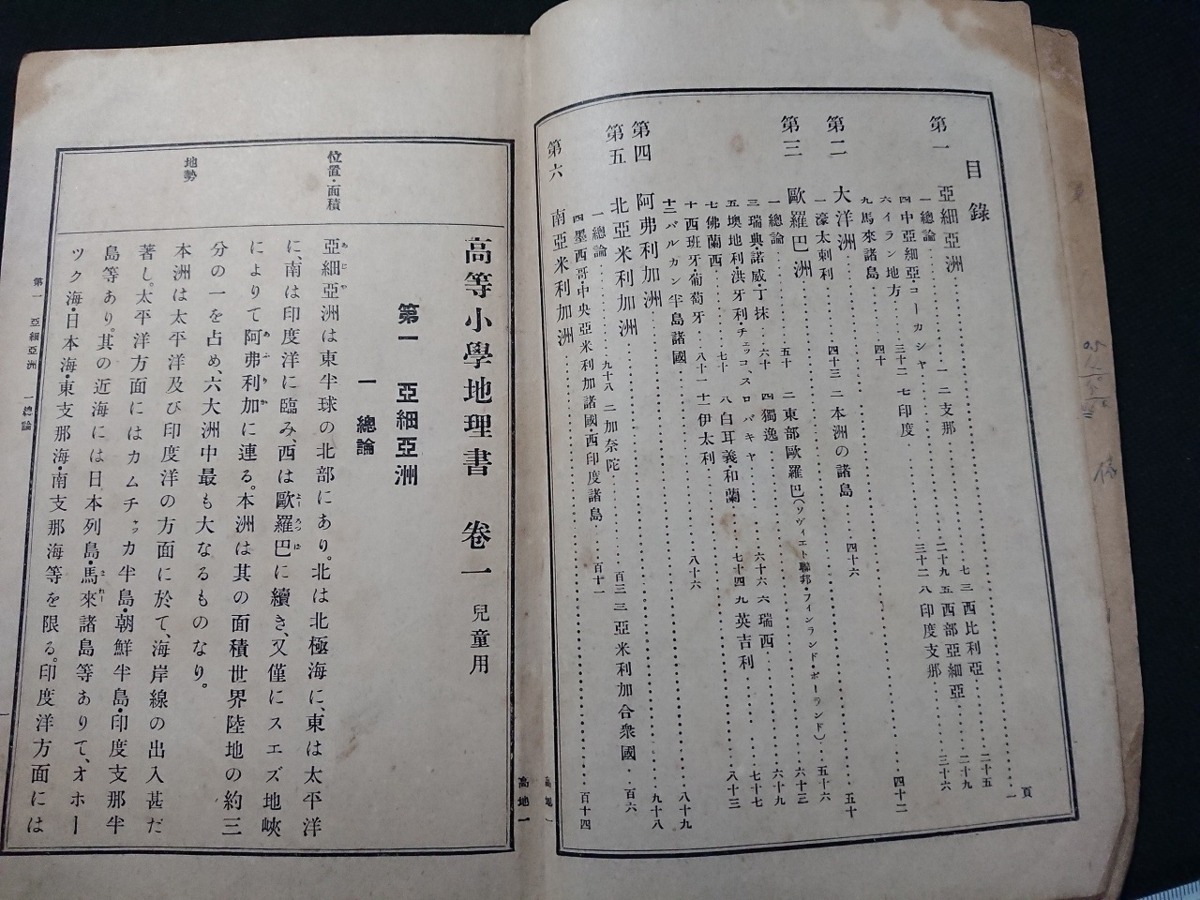 目錄
頁
第一 亞細亞洲 一
一總論 一 二支那 七 三西比利亞 二十五
四中亞細亞コーカシヤ 二十九 五西部亞細亞 二十九
六イラン地方 三十二 七印度 三十二 八印度支那 三十六
九馬來諸島 四十 四十二
第二 大洋洲
一濠太剌利 四十三 二本洲の諸島 四十六 五十
第三 歐羅巴洲 五十六
一總論 五十 二東部歐羅巴(ソヴィエト聯邦・フィンランド・ポーランド) 六十三
三瑞典・諾威・丁抹 六十 四獨逸 六十六 六瑞西 六十九
五墺地利洪牙利・チェッコスロバキヤ 七十四 九英吉利 七十七
七佛蘭西 七十 八白耳義・和蘭 八十三
十西班牙・葡萄牙 八十一 十一伊太利
十二バルカン半島諸國 八十六 八十九
第四 阿弗利加洲 九十八
第五 北亞米利加洲
一總論 九十八 二加奈陀 百三 三亞米利加合衆國 百六
四墨西哥・中央亞米利加諸國西印度諸島 百十一
第六 南亞米利加洲 百十四
高地一
高等小學地理書 卷一 兒童用
第一 亞細亞洲
一 總論
位置・面積
亞細亞洲は東半球の北部にあり。北は北極海に、東は太平洋
に、南は印度洋に臨み、西は歐羅巴に續き、又僅にスエズ地峽
によりて阿弗利加に連る。本洲は其の面積世界陸地の約三
分の一を占め、六大洲中最も大なるものなり。
地勢
本洲は太平洋及び印度洋の方面に於て、海岸線の出入甚だ
著し。太平洋方面にはカムチャッカ半島・朝鮮半島・印度支那半
島等あり。其の近海には日本列島・馬來諸島等ありて、オホー
ツク海・日本海・東支那海・南支那海等を限る。印度洋方面には
第一 亞細亞洲 一總論
一